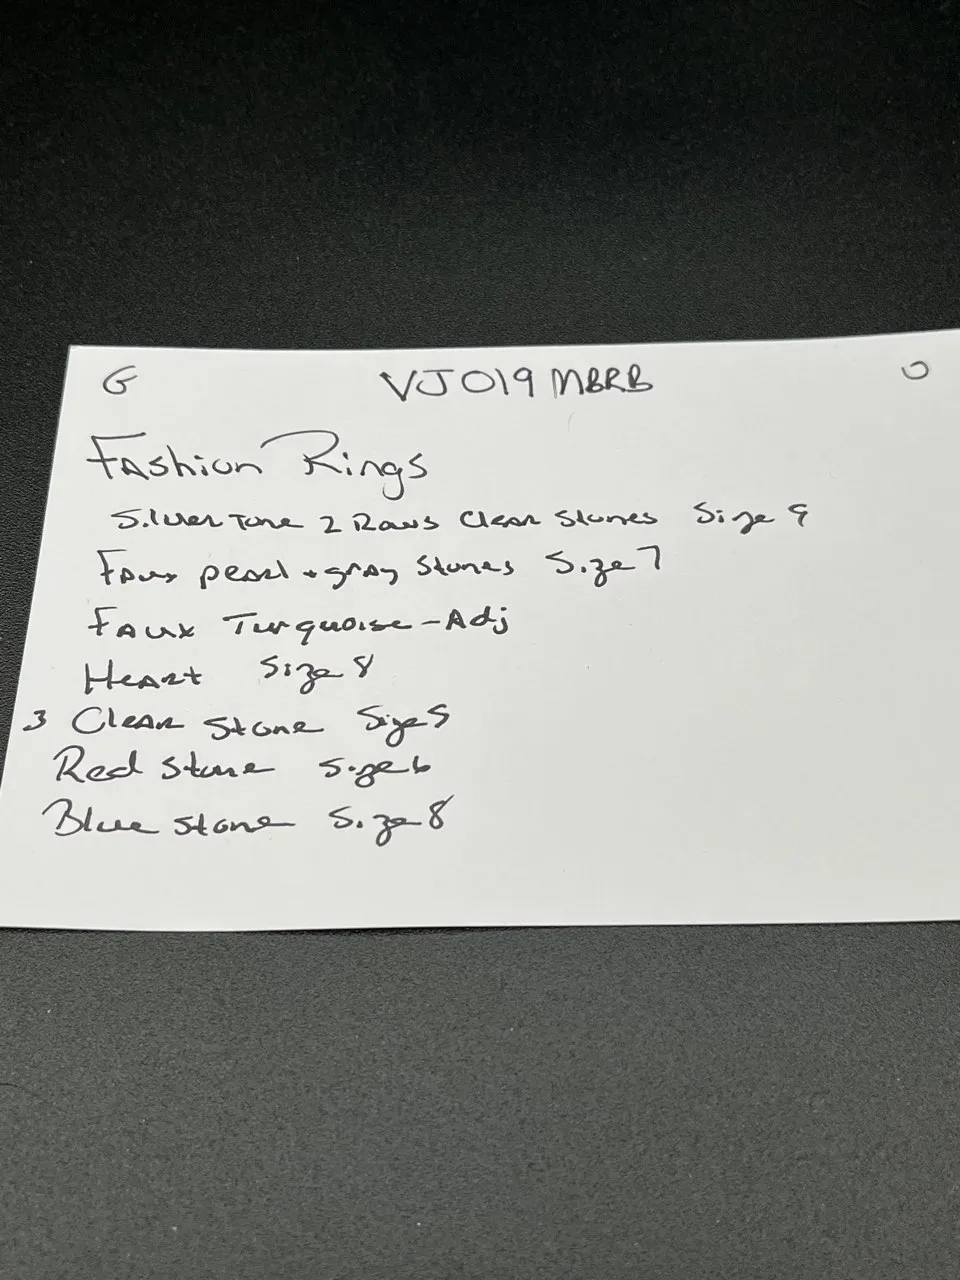 G VJ019MBRB O
Fashion Rings
Silver Tone 2 Rows Clear Stones Size 9
Faux pearl + gray Stones Size 7
Faux Turquoise - Adj
Heart Size 8
3 Clear Stone Size 5
Red Stone Size 6
Blue Stone Size 8